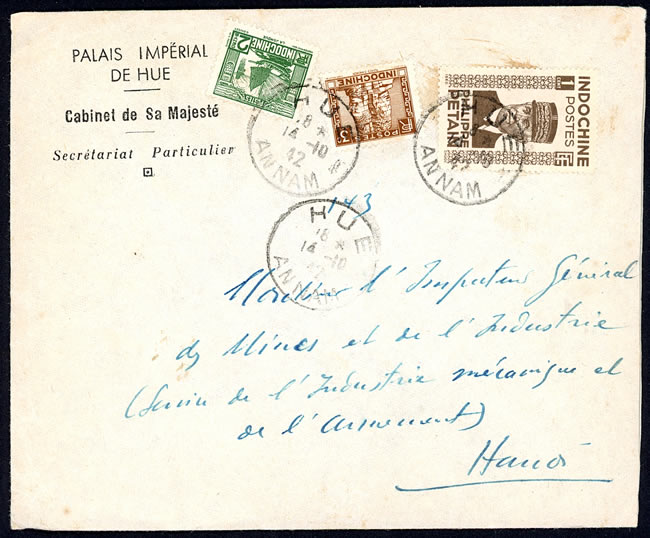 PALAIS IMPÉRIAL
DE HUE
Cabinet de Sa Majesté
Secrétariat Particulier
2c
INDOCHINE
POSTES
3c
INDOCHINE
POSTES
1c
INDOCHINE
POSTES
PHILIPPE
PÉTAIN
HUE
18 *
14-10
42
ANNAM
HUE
ANNAM
143
HUE
18 *
14-10
42
ANNAM
Monsieur l'Inspecteur Général
des Mines et de l'Industrie
(Service de l'Industrie mécanique et
de l'armement)
Hanoi